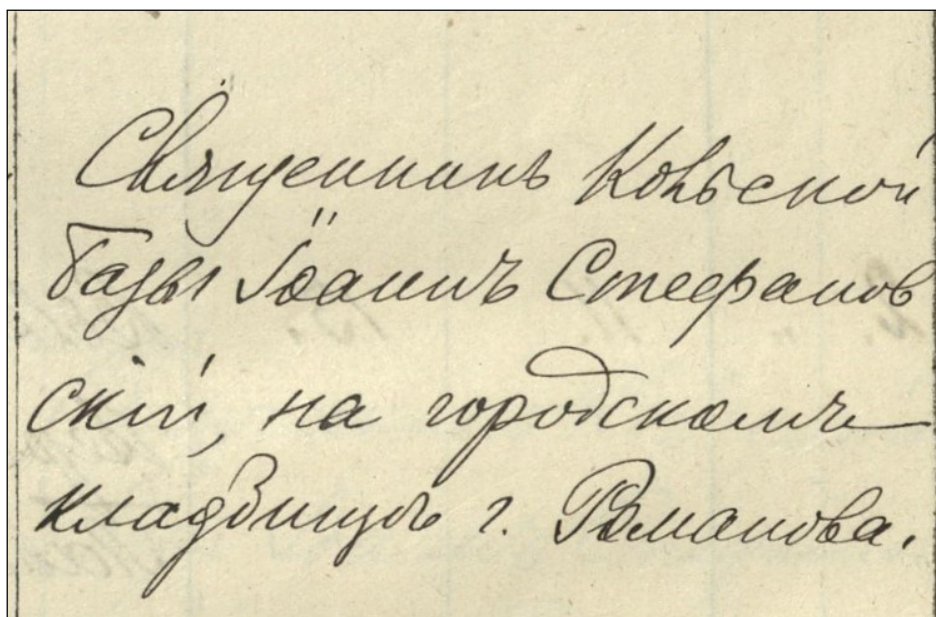 Священникъ Кольской
базы Іоаннъ Стефанов
скій, на городскомъ
кладбищѣ г. Романова.